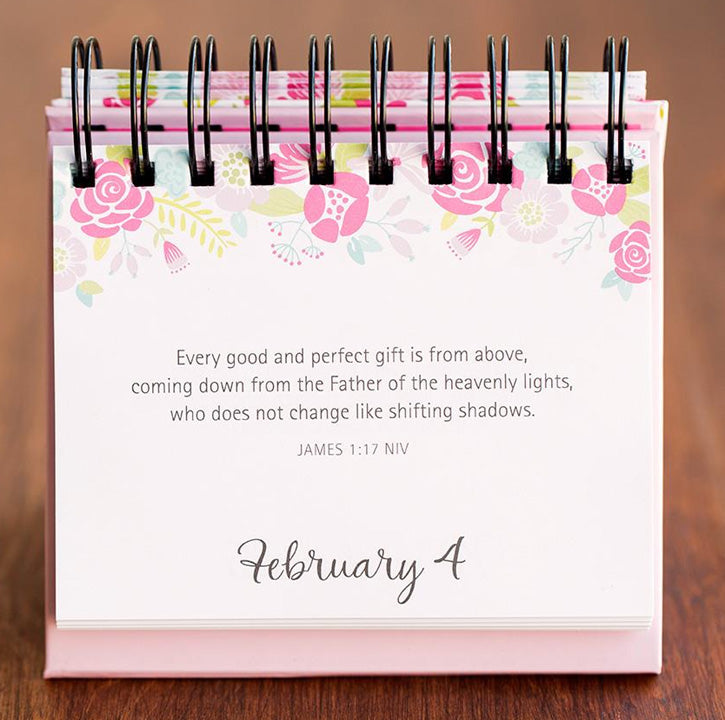 Every good and perfect gift is from above,
coming down from the Father of the heavenly lights,
who does not change like shifting shadows.
JAMES 1:17 NIV
February 4